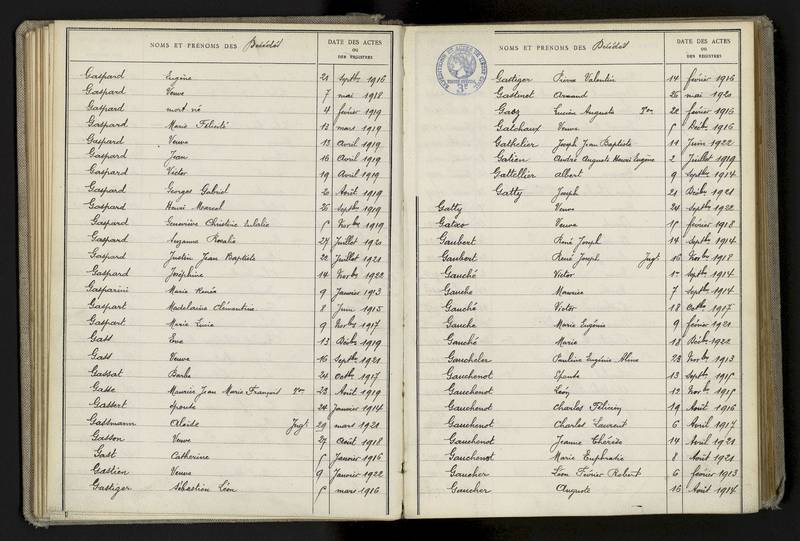 NOMS ET PRÉNOMS DES Décédés DATE DES ACTES OU DES REGISTRES
Gaspard Eugène 21 Septbre 1916
Gaspard Veuve 7 mai 1918
Gaspard mort né 4 février 1919
Gaspard Marie Félicité 12 mars 1919
Gaspard Veuve 13 Avril 1919
Gaspard Jean 16 Avril 1919
Gaspard Victor 19 Avril 1919
Gaspard Georges Gabriel 2 Août 1919
Gaspard Henri Marcel 25 Septbre 1919
Gaspard Geneviève Christine Eulalie 5 Novbre 1919
Gaspard Suzanne Rosalie 27 Juillet 1920
Gaspard Justin Jean Baptiste 22 Juillet 1921
Gaspard Joséphine 14 Novbre 1922
Gasparini Marie Renée 9 Janvier 1913
Gaspart Madelaine Clémentine 8 Juin 1915
Gaspart Marie Lucie 9 Novbre 1917
Gass Eve 13 Décbre 1919
Gass Veuve 16 Septbre 1921
Gassat Barbe 24 Octbre 1917
Gasse Maurice Jean Marie François 23 Août 1919
Gassert épouse 24 Janvier 1914
Gassmann Aloïse Jugt 29 mars 1921
Gasson Veuve 27 Août 1918
Gast Catherine 5 Janvier 1916
Gastien Veuve 9 Janvier 1922
Gastiger Sébastien Léon 5 mars 1916
NOMS ET PRÉNOMS DES Décédés DATE DES ACTES OU DES REGISTRES
3e
Gastiger Pierre Valentin 14 février 1916
Gastinet Armand 26 mai 1920
Gasz Lucien Auguste 22 février 1916
Gatchaux Veuve 5 Décbre 1916
Gathelier Joseph Jean Baptiste 11 Juin 1922
Gatien André Auguste Henri Eugène 2 Juillet 1919
Gattellier Albert 9 Septbre 1914
Gatty Joseph 21 Décbre 1921
Gatty Veuve 24 Septbre 1922
Veuve 15 février 1918
Gaubert René Joseph 14 Septbre 1914
Gaubert René Joseph Jugt 16 Novbre 1918
Gauché Victor Septbre 1914
Gauche Maurice 7 Septbre 1914
Gauché Victor 18 Octbre 1917
Gauche Marie Eugénie 9 février 1921
Gauché Marie 18 Décbre 1922
Gaucheler Pauline Eugénie Aline 23 Novbre 1913
Gauchenot épouse 13 Septbre 1915
Gauchenot Léon 12 Novbre 1915
Gauchenot Charles Félicien 19 Août 1916
Gauchenot Charles Laurent 6 Avril 1917
Gauchenot Jeanne Thérèse 14 Avril 1921
Gauchenot Marie Euphrasie 8 Août 1921
Gaucher Léon Février Robert 6 février 1913
Gaucher Auguste 16 Août 1914